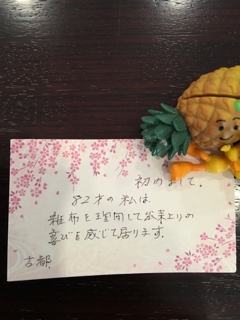 初めまして。
82才の私は
雑布を理同して出来上りの
喜びを感じて居ります。
古都